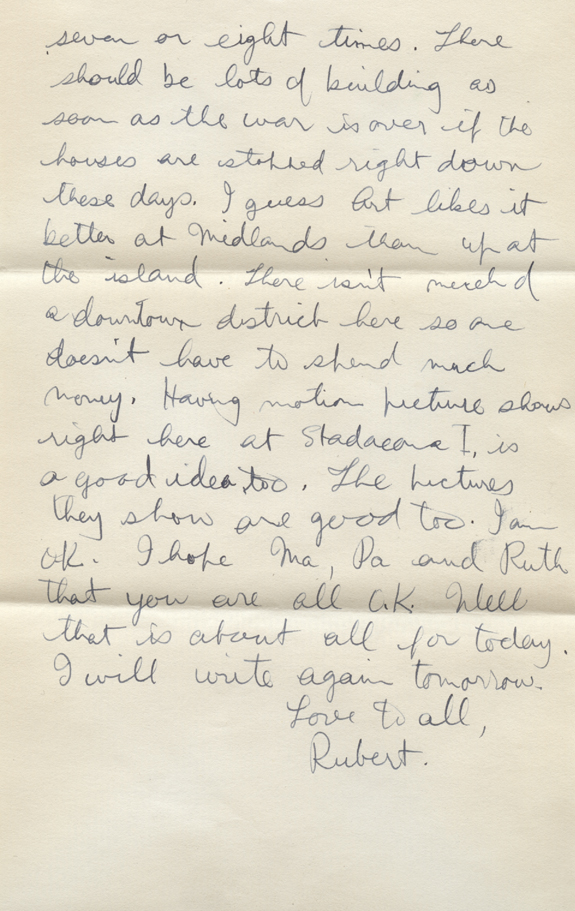 seven or eight times. There
should be lots of building as
soon as the war is over if the
houses are stopped right down
these days. I guess Art likes it
better at Midlands than up at
the island. There isn't much of
a downtown district here so one
doesn't have to spend much
money. Having motion picture shows
right here at Stadacona I, is
a good idea, too. The pictures
they show are good too. I am
OK. I hope Ma, Pa and Ruth
that you are all O.K. Well
that is about all for today.
I will write again tomorrow.
Love to all,
Rubert.